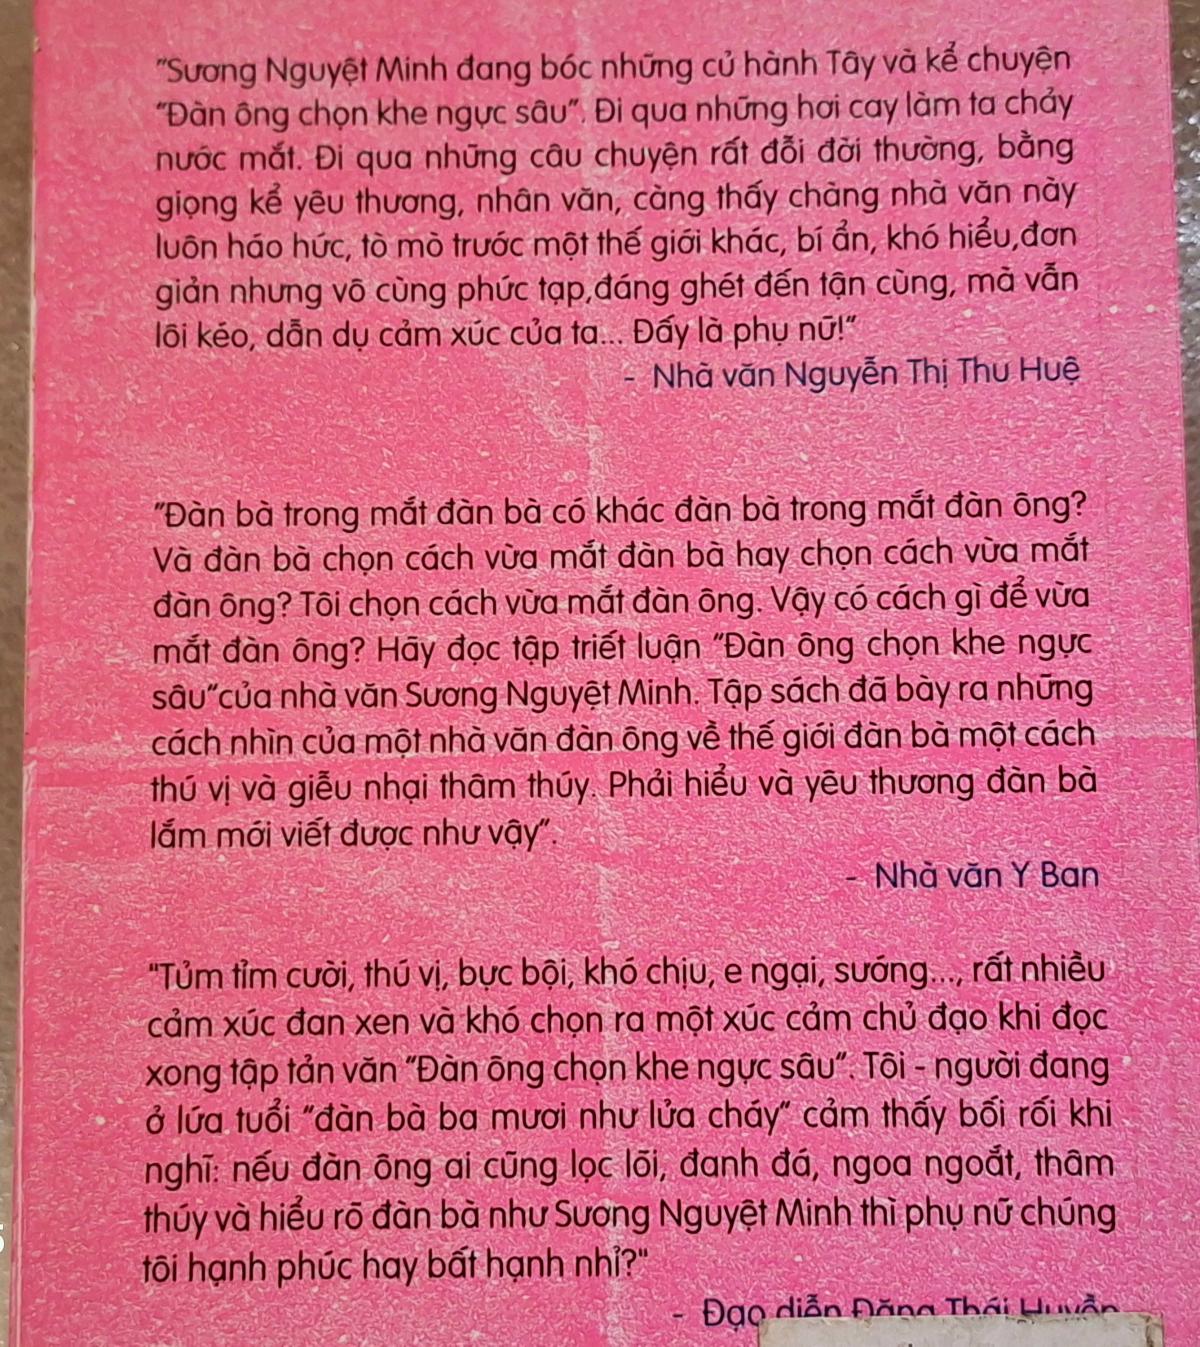 "Sương Nguyệt Minh đang bóc những củ hành Tây và kể chuyện
"Đàn ông chọn khe ngực sâu". Đi qua những hơi cay làm ta chảy
nước mắt. Đi qua những câu chuyện rất đỗi đời thường, bằng
giọng kể yêu thương, nhân văn, càng thấy chàng nhà văn này
luôn háo hức, tò mò trước một thế giới khác, bí ẩn, khó hiểu,đơn
giản nhưng vô cùng phức tạp,đáng ghét đến tận cùng, mà vẫn
lôi kéo, dẫn dụ cảm xúc của ta... Đấy là phụ nữ!"
- Nhà văn Nguyễn Thị Thu Huệ
"Đàn bà trong mắt đàn bà có khác đàn bà trong mắt đàn ông?
Và đàn bà chọn cách vừa mắt đàn bà hay chọn cách vừa mắt
đàn ông? Tôi chọn cách vừa mắt đàn ông. Vậy có cách gì để vừa
mắt đàn ông? Hãy đọc tập triết luận "Đàn ông chọn khe ngực
sâu"của nhà văn Sương Nguyệt Minh. Tập sách đã bày ra những
cách nhìn của một nhà văn đàn ông về thế giới đàn bà một cách
thú vị và giễu nhại thâm thúy. Phải hiểu và yêu thương đàn bà
lắm mới viết được như vậy".
- Nhà văn Y Ban
"Tủm tỉm cười, thú vị, bực bội, khó chịu, e ngại, sướng..., rất nhiều
cảm xúc đan xen và khó chọn ra một xúc cảm chủ đạo khi đọc
xong tập tản văn "Đàn ông chọn khe ngực sâu". Tôi - người đang
ở lứa tuổi "đàn bà ba mươi như lửa cháy" cảm thấy bối rối khi
nghĩ: nếu đàn ông ai cũng lọc lõi, đanh đá, ngoa ngoắt, thâm
thúy và hiểu rõ đàn bà như Sương Nguyệt Minh thì phụ nữ chúng
tôi hạnh phúc hay bất hạnh nhỉ?"
- Đạo diễn Đặng Thái Huyền